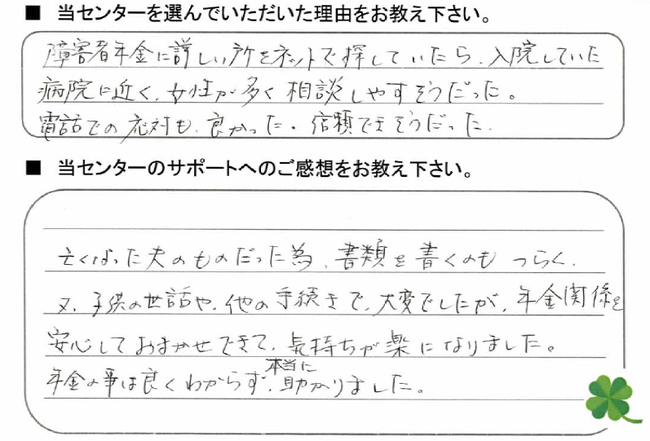 ■ 当センターを選んでいただいた理由をお教え下さい。
障害者年金に詳しい所をネットで探していたら、入院していた
病院に近く、女性が多く相談しやすそうだった。
電話での応対も、良かった。信頼できそうだった。
■ 当センターのサポートへのご感想をお教え下さい。
亡くなった夫のものだった為、書類を書くのもつらく、
又、子供の世話や、他の手続きで、大変でしたが、年金関係を
安心しておまかせできて、気持ちが楽になりました。
年金の事は良くわからず、本当に助かりました。